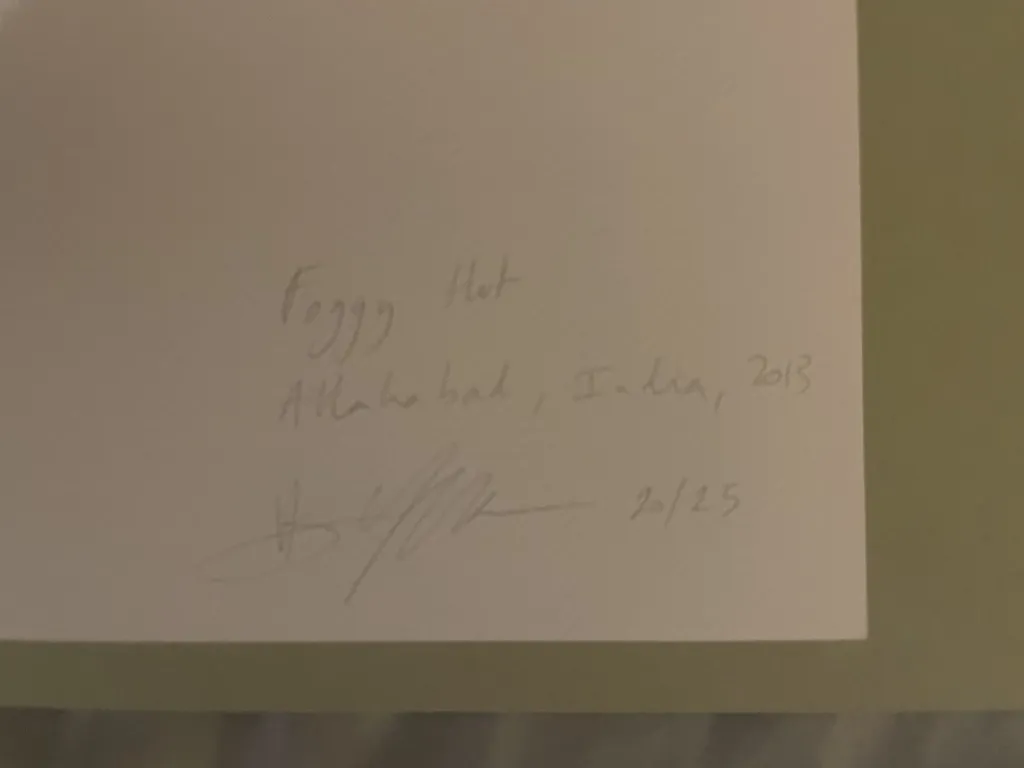 Foggy Hut
Allahabad, India, 2013
20/25